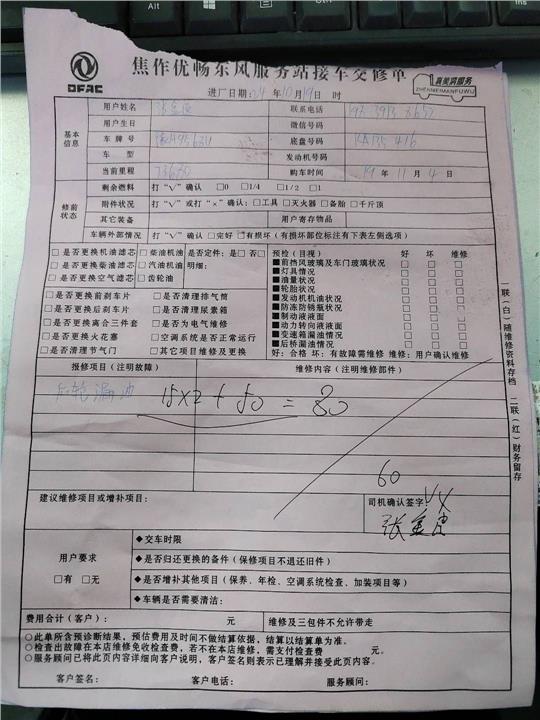 DFAC
焦作优畅东风服务站接车交修单
真美满服务
ZHENMEIMANFUWU
进厂日期:24年10月19日 时
基本信息
用户姓名
联系电话
用户生日
微信号码
车牌号
底盘号码
车型
发动机号码
当前里程
购车时间 19年11月4日
修前状态
剩余燃料 打“√”确认 □0 □1/4 □1/2 □1
附件状况 打“√”或打“×”确认:□工具 □灭火器 □备胎 □千斤顶
其它装备
用户寄存物品
车辆外部情况 打“√”确认 □完好 □有损坏(有损坏部位标注有下表左侧选项)
□是否更换机油滤芯 □柴油机油 是否定件:是□ 否□
□是否更换柴油滤芯 □汽油机油 明细:
□是否更换空气滤芯 □齿轮油
□是否更换前刹车片 □是否清理排气筒
□是否更换后刹车片 □是否清理尿素箱
□是否更换离合三件套 □是否为电气维修
□是否更换火花塞 □空调系统是否正常运行
□是否清理节气门 □其它项目维修及更换
预检(目视) 好 坏 维修
■前挡风玻璃及车门玻璃状况 □ □ □
■灯具情况 □ □ □
■油量状况 □ □ □
■轮胎状况 □ □ □
■发动机机油状况 □ □ □
■防冻防锈瓶状况 □ □ □
■制动液液面 □ □ □
■动力转向液液面 □ □ □
■变速箱漏油情况 □ □ □
■后桥漏油情况 □ □ □
好:合格 坏:有故障需维修 维修:用户确认维修
报修项目(注明故障)
维修内容(注明维修部件)
轮漏油
15×2+50=80
60
建议维修项目或增补项目:
司机确认签字
用户要求
□有 □无
◆交车时限
◆是否归还更换的备件(保修项目不退还旧件)
◆是否增补其他项目(保养、年检、空调系统检查、加装项目等)
◆车辆是否需要清洁:
费用合计(客户): 元
维修及三包件不允许带走
○此单所含预诊断结果,预估费用及时间不做结算依据,结算以结算单为准。
○检查出故障在本店维修免收检查费,若不在本店维修,需支付检查费 元。
○服务顾问已将此页内容详细向客户说明,客户签名则表示已理解并接受此页内容。
客户签名: 客户电话: 服务顾问:
一联(白)随维修资料存档
二联(红)财务留存